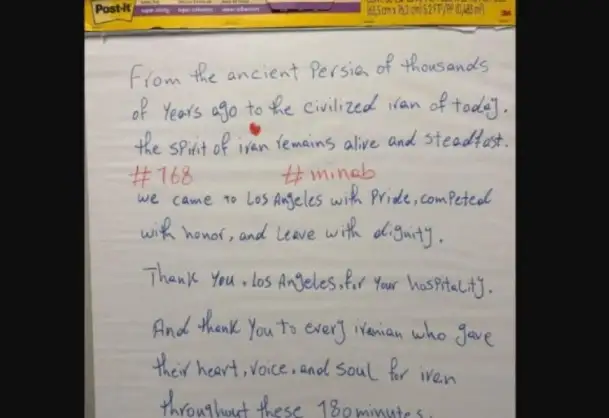 Post-it
super sticky
From the ancient Persia of thousands
of Years ago to the civilized iran of today.
the spirit of iran remains alive and steadfast.
#168 #minab
we came to Los Angeles with Pride, competed
with honor, and Leave with dignity.
Thank You, Los Angeles, for your hospitality.
And thank You to every iranian who gave
their heart, voice, and soul for iran
throughout these 180 minutes.